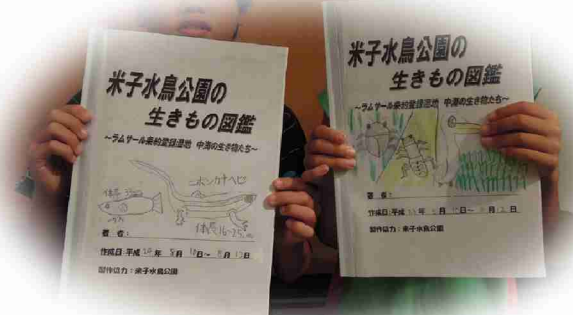 米子水鳥公園の
生きもの図鑑
～ラムサール条約登録湿地 中海の生き物たち～
ニホンカナヘビ
体長
著 者：
作成日：平成 24 年 8月 18日～ 8月 19日
製作協力：米子水鳥公園
米子水鳥公園の
生きもの図鑑
～ラムサール条約登録湿地 中海の生き物たち～
著 者：
作成日：平成
製作協力：米子水鳥公園